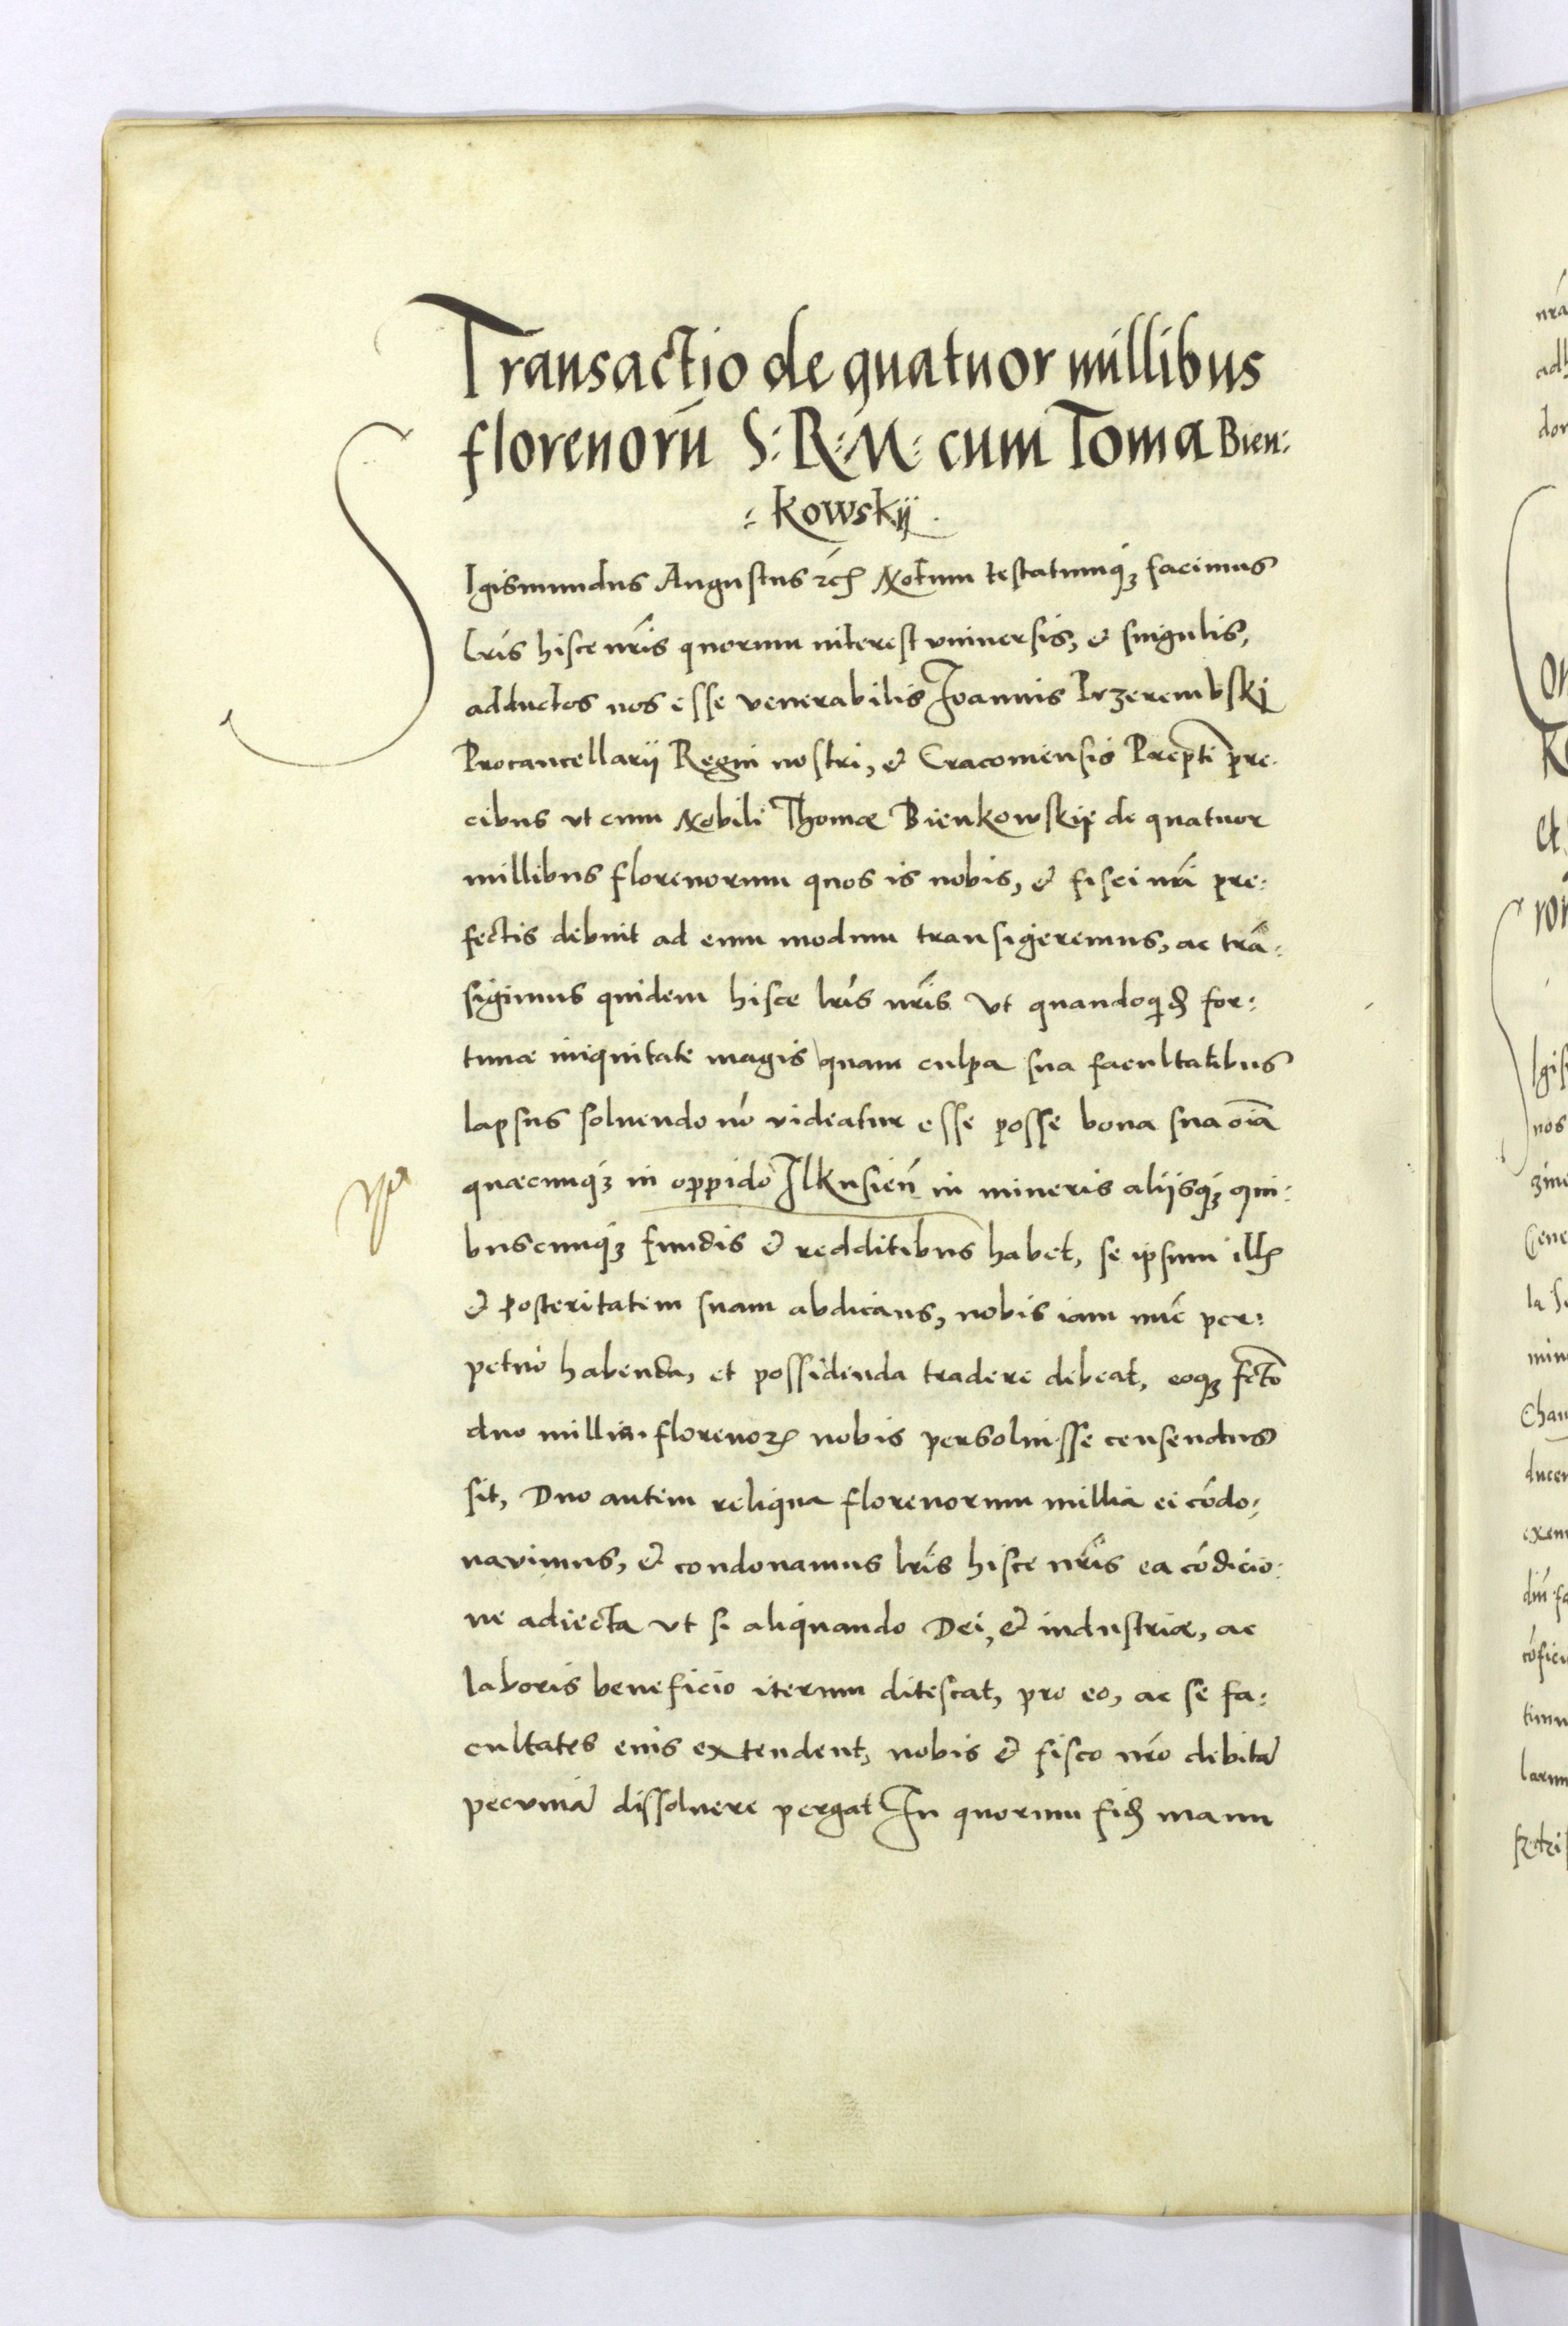 Transactio de quatuor millibus
florenorū S: R: M: cum Toma Bien:
:kowskÿ.
SIgismundus Augustus etc Notum testatumq3 facimus
lrīs hisce nrīs quorum interest vniuersis, et singulis,
adductos nos esse venerabilis Joannis Przerembskj
Procancellarÿ Regni nostri, et Cracouiensis Prepti pre-
cibus vt cum Nobili Thoma Bienkowskÿ de quatuor
millibus florenorum quos is nobis, et fisci nrī pre:
fectis debuit ad eum modum transigeremus, ac trā:
sigimus quidem hisce lrīs nrīs Vt quandoqd for:
tunæ iniquitate magis quam culpa sua facultatibus
lapsus soluendo nō videatur esse posse bona sua oīa
quæcunq3 in oppido Ilkusień in mineris alijsq3 qui:
buscunq3 fundis et redditibus habet, se ipsum ill
et posteritatem suam abdicans, nobis iam nūc per:
petuo habenda, et possidenda tradere debeat, eoq3 fcto
duo millia florenor nobis persoluisse censendus
sit, Duo autem reliqua florenorum millia ei cōdo:
nauimus, et condonamus lrīs hisce nrīs ea cōdicio:
ne adiecta vt si aliquando Dei, et industriæ, ac
laboris beneficio iterum ditescat, pro eo, ac se fa:
cultates eius extendent, nobis et fisco nrō debitā
pecuniā dissoluere pergat In quorum fid manu